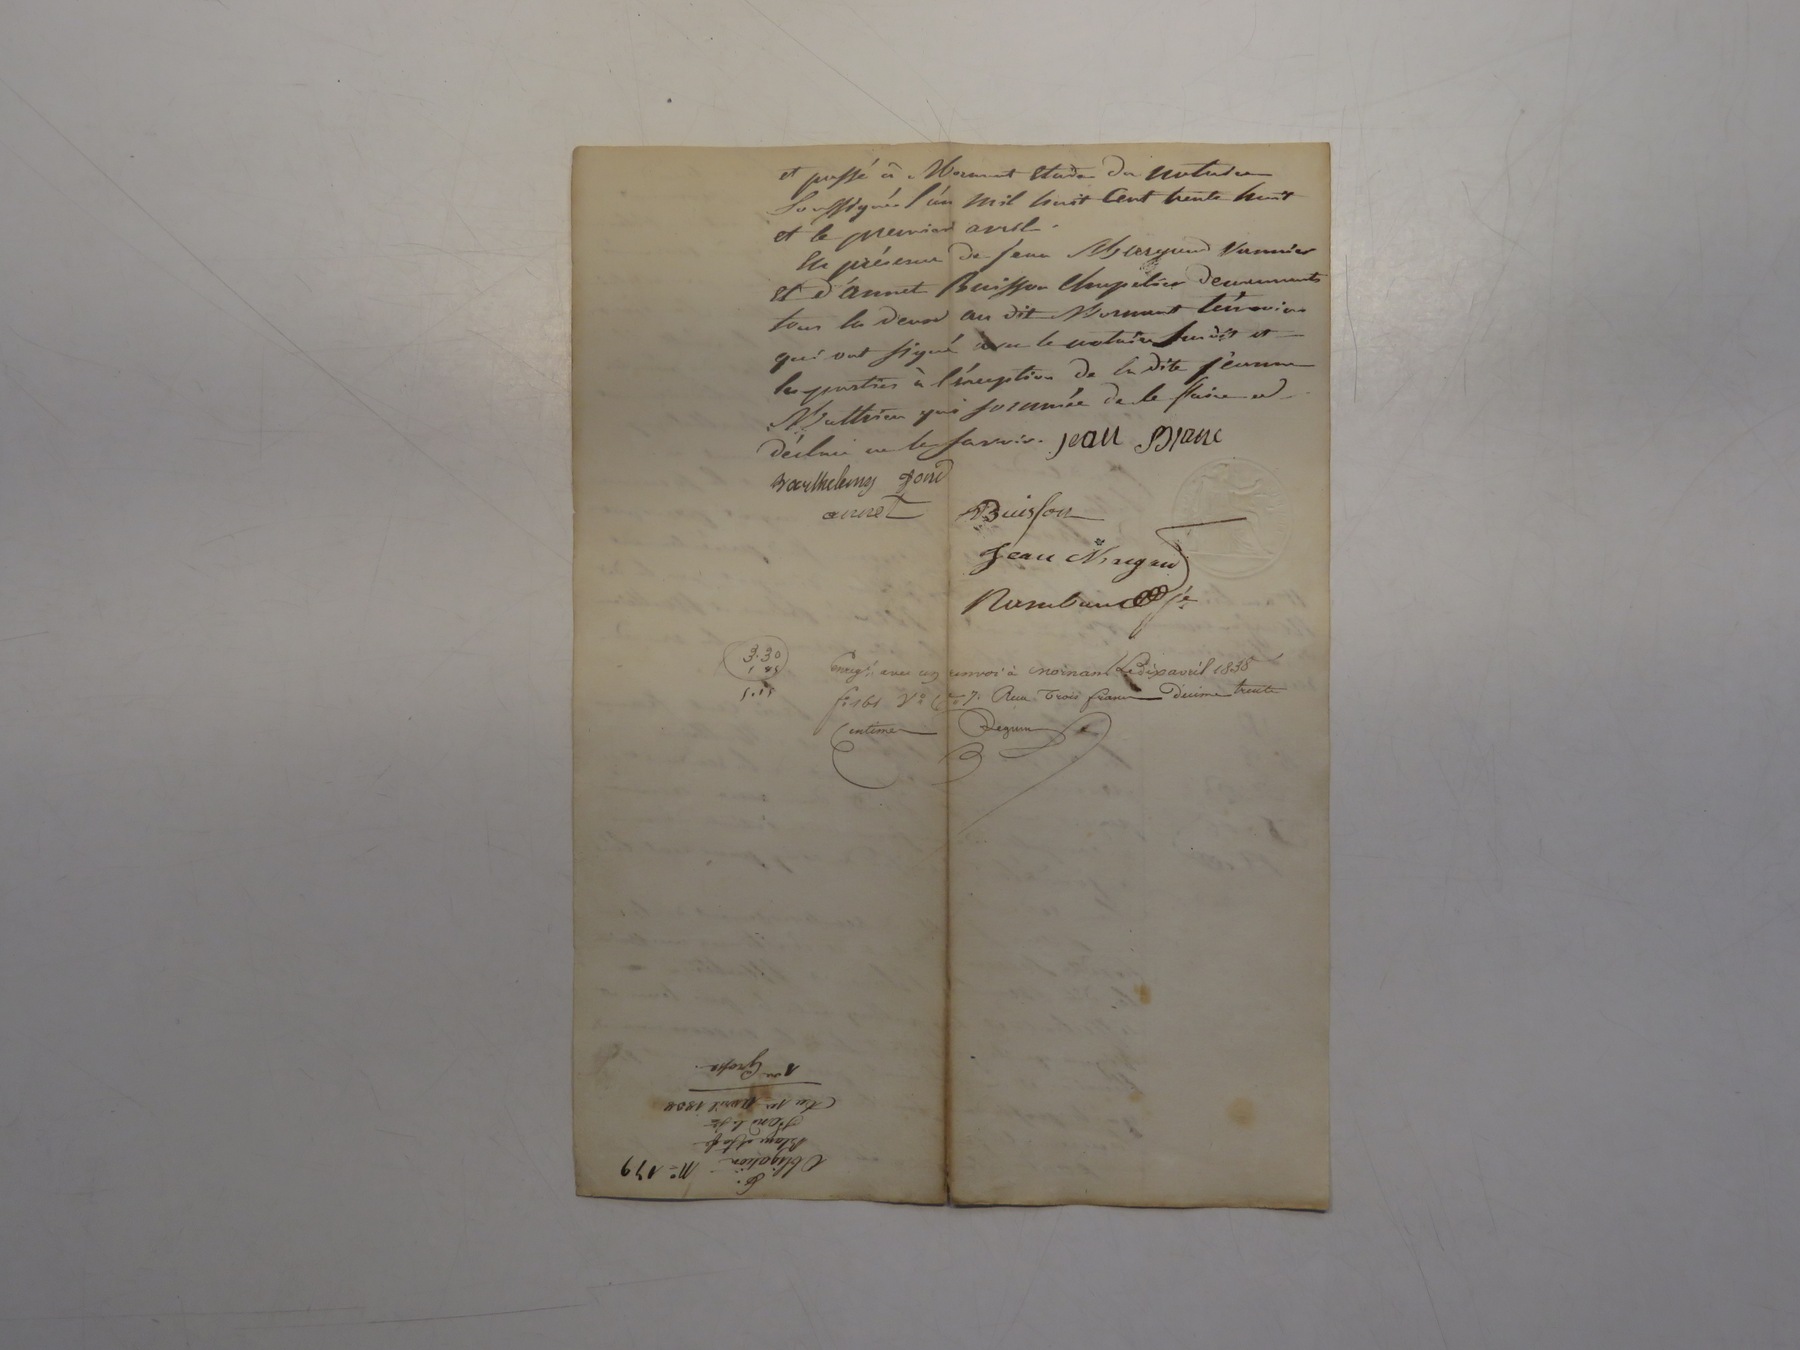 et passé à Mornant Etude du notaire
Soussigné l'an mil huit Cent trente huit
et le premier avril.
En présence de Jean Margand Vannier
et d'annet Buisson Chapelier demeurants
tous les deux au dit Mornant témoins
qui ont signé avec le notaire susdit et
les parties à l'éxeption de la dite femme
Mathieu qui sommée de le faire a
déclaré ne le savoir. jean Blanc
Barthelemy fond
annet Buisson
Jean Margand
Rambaud
3.30
1 85
5.15
Enregé. avec un renvoi à mornant Le dix avril 1838
fo. 161 Vo Ce 7. Reçu Trois francs Décime trente
Centimes
No. 179
Obligation
Du 1er avril 1838
1ere Grosse.